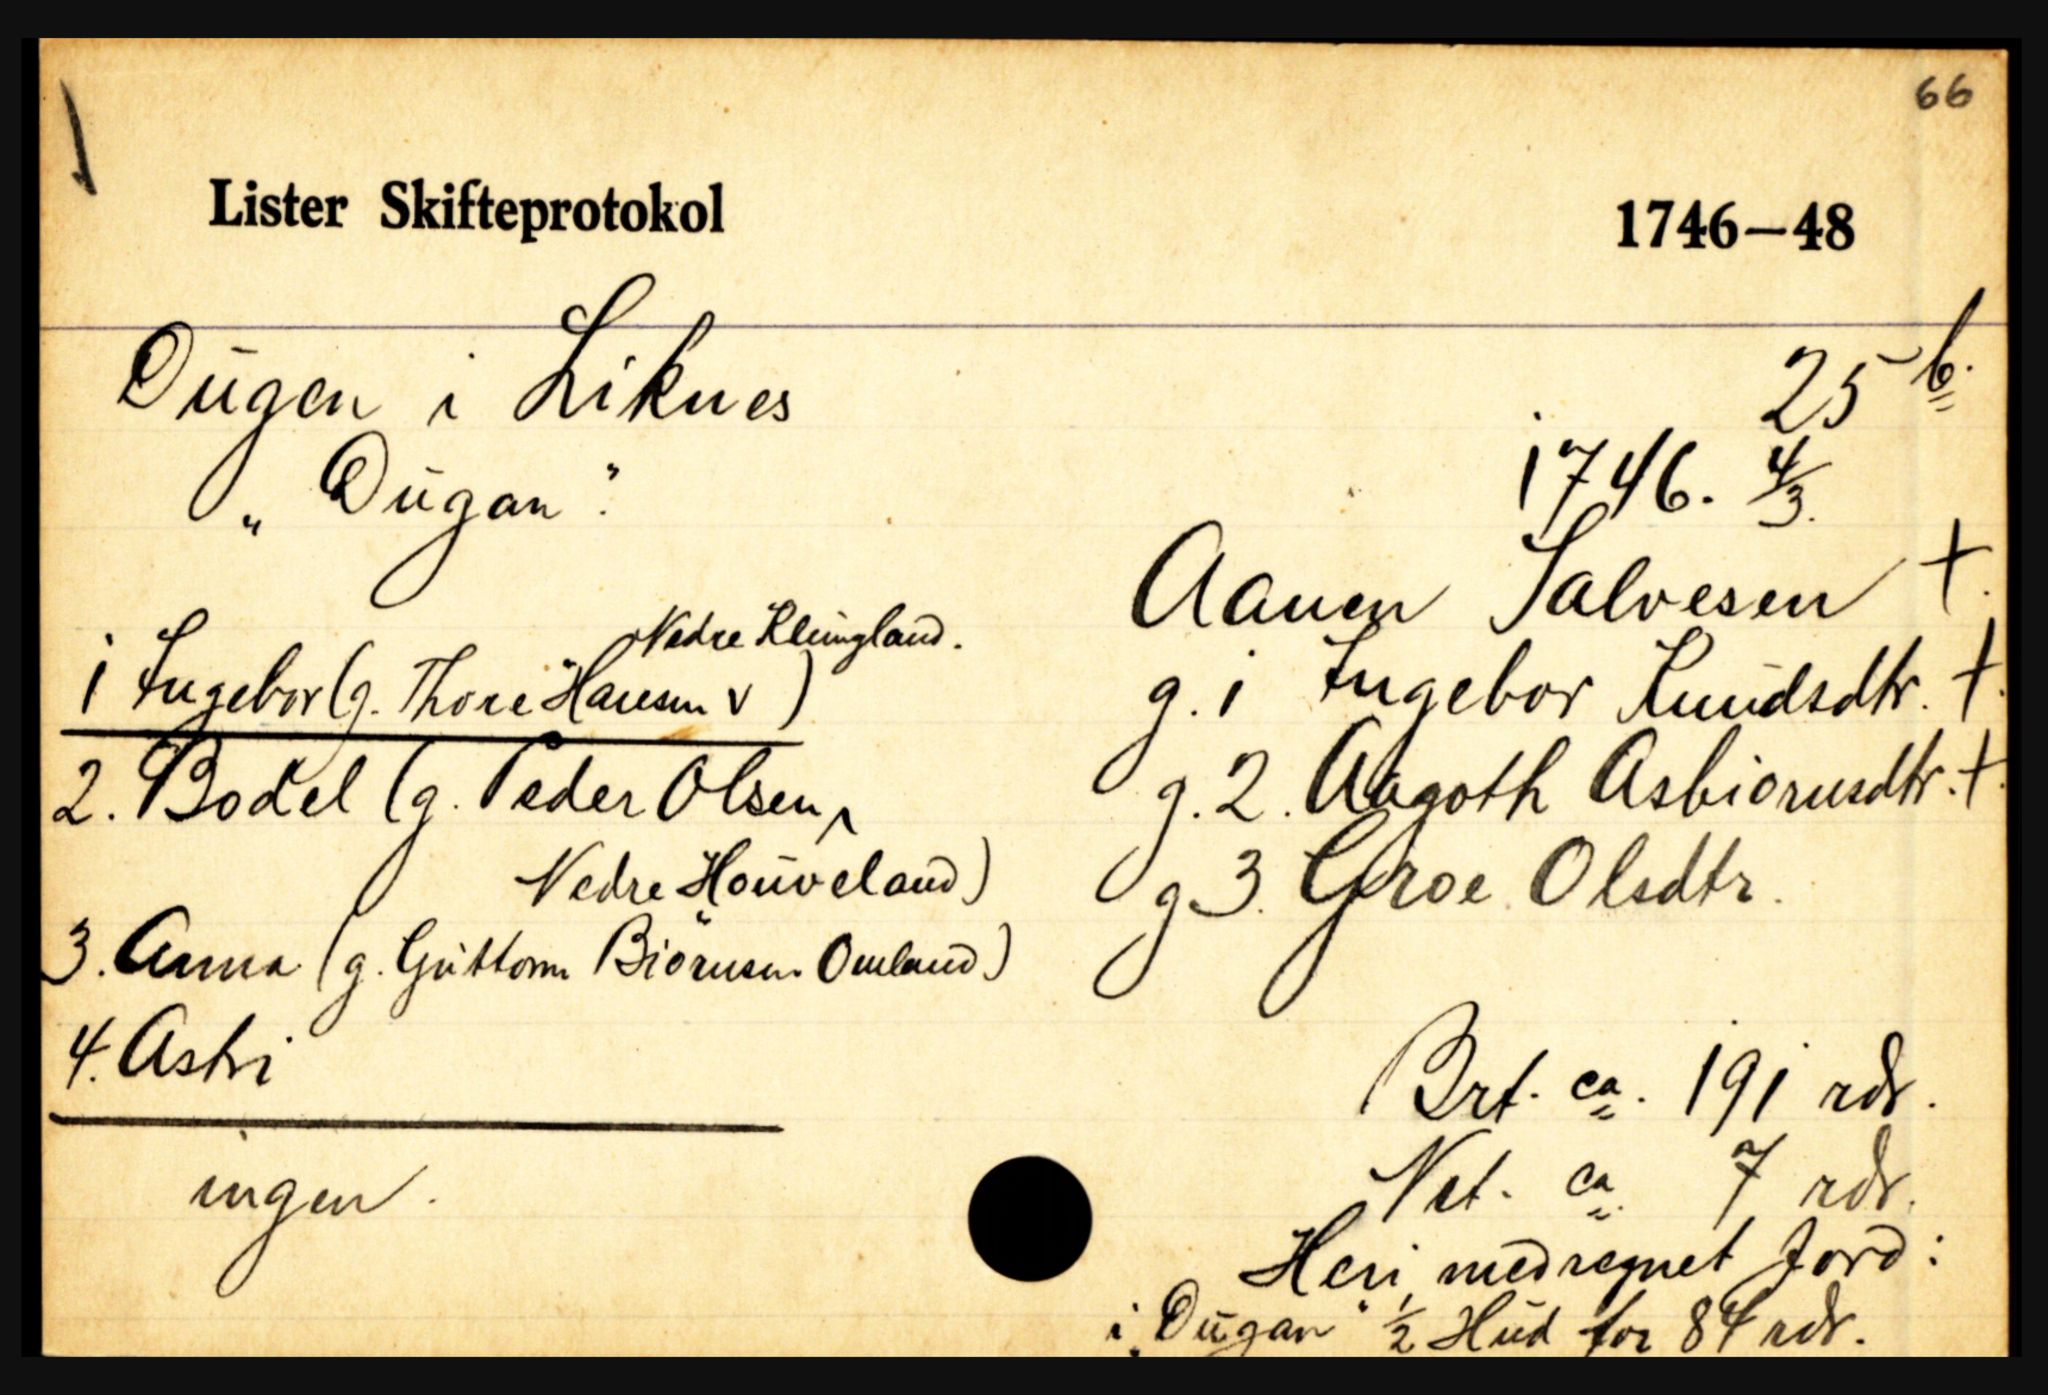 66
Lister Skifteprotokol 1746—48
Dugen i Liknes
25 b.
„Dugan".
1746. 4/3.
Aanen Salvesen +.
g. 1 Ingebor Knudsdtr. +.
g. 2. Aagoth Asbiornsdtr. +.
g 3. Groe Olsdtr.
Nedre Kleungland.
1 Ingebor (g. Thore Hansen v )
2. Bodel (g. Peder Olsen,
Nedre Houveland)
3. Anna (g. Guttorm Biörnsen Omland)
4. Astri
ingen.
Brt. ca. 191 rdr.
Net. ca. 7 rdr.
Heri medregnet Jord:
i „Dugan" 1/2 Hud for 84 rdr.